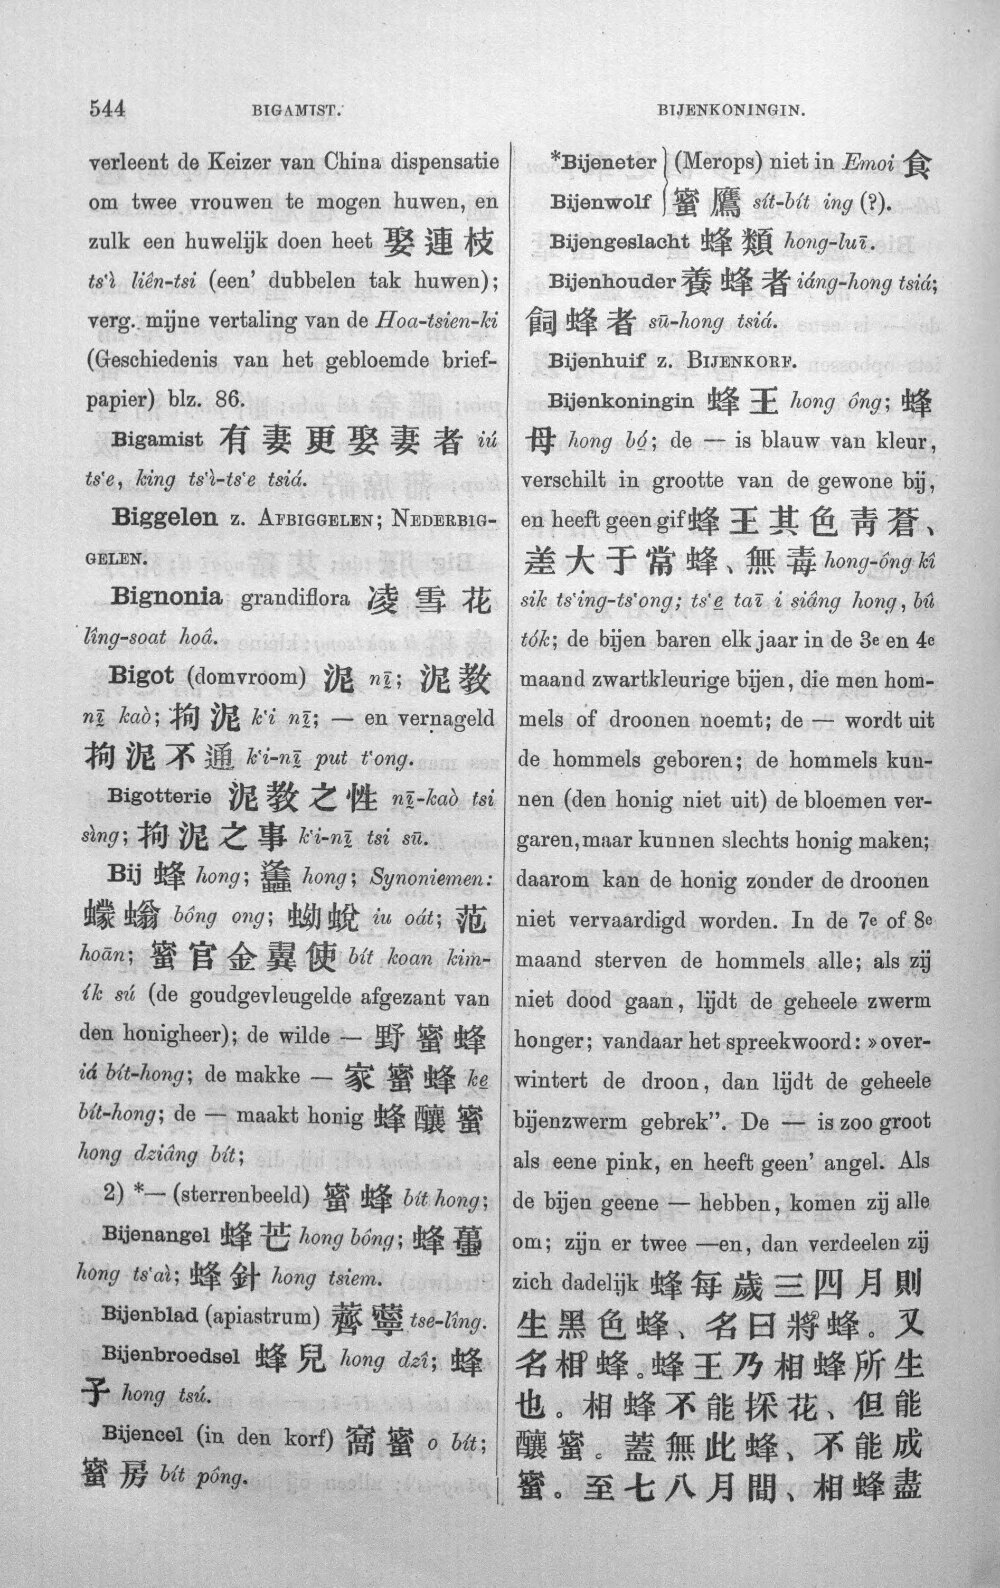 544
BIGAMIST.
BIJENKONINGIN.
verleent de Keizer van China dispensatie
om twee vrouwen te mogen huwen, en
zulk een huwelijk doen heet 娶連枝
ts‘ì liên-tsi (een’ dubbelen tak huwen);
verg. mijne vertaling van de Hoa-tsien-ki
(Geschiedenis van het gebloemde brief-
papier) blz. 86.
Bigamist 有妻更娶妻者 iú
ts‘e, king ts‘ì-ts‘e tsiá.
Biggelen z. AFBIGGELEN; NEDERBIG-
GELEN.
Bignonia grandiflora 凌雪花
lîng-soat hoâ.
Bigot (domvroom) 泥 nī; 泥教
nī kaò; 拘泥 k‘i nī; — en vernageld
拘泥不通 k‘i-nī put t‘ong.
Bigotterie 泥教之性 nī-kaò tsi
sìng; 拘泥之事 k‘i-nī tsi sū.
Bij 蜂 hong; hong; Synoniemen:
蠓螉 bông ong; 蚴蛻 iu oát; 范
hoān; 蜜官金翼使 bít koan kim-
ík sú (de goudgevleugelde afgezant van
den honigheer); de wilde — 野蜜蜂
iá bít-hong; de makke — 家蜜蜂 ke
bít-hong; de — maakt honig 蜂釀蜜
hong dziâng bít;
2) *— (sterrenbeeld) 蜜蜂 bít hong;
Bijenangel 蜂芒 hong bông; 蜂蠆
hong ts‘aì; 蜂針 hong tsiem.
Bijenblad (apiastrum) 薺薴 tse-lîng.
Bijenbroedsel 蜂兒 hong dzî; 蜂
子 hong tsú.
Bijencel (in den korf) 窩蜜 o bít;
蜜房 bít pông.
*Bijeneter (Merops) niet in Emoi 食
Bijenwolf 蜜鷹 sít-bít ing (?).
Bijengeslacht 蜂類 hong-luī.
Bijenhouder 養蜂者 iáng-hong tsiá;
飼蜂者 sū-hong tsiá.
Bijenhuif z. BIJENKORF.
Bijenkoningin 蜂王 hong ông; 蜂
母 hong bó; de — is blauw van kleur,
verschilt in grootte van de gewone bij,
en heeft geen gif 蜂王其色靑蒼、
差大于常蜂、無毒 hong-ông kî
sik ts‘ing-ts‘ong; ts‘e taī i siâng hong, bû
tók; de bijen baren elk jaar in de 3e en 4e
maand zwartkleurige bijen, die men hom-
mels of droonen noemt; de — wordt uit
de hommels geboren; de hommels kun-
nen (den honig niet uit) de bloemen ver-
garen, maar kunnen slechts honig maken;
daarom kan de honig zonder de droonen
niet vervaardigd worden. In de 7e of 8e
maand sterven de hommels alle; als zij
niet dood gaan, lijdt de geheele zwerm
honger; vandaar het spreekwoord: »over-
wintert de droon, dan lijdt de geheele
bijenzwerm gebrek”. De — is zoo groot
als eene pink, en heeft geen’ angel. Als
de bijen geene — hebben, komen zij alle
om; zijn er twee —en, dan verdeelen zij
zich dadelijk 蜂每歲三四月則
生黑色蜂、名曰將蜂。又
名相蜂。蜂王乃相蜂所生
也。相蜂不能採花、但能
釀蜜。蓋無此蜂、不能成
蜜。至七八月間、相蜂盡